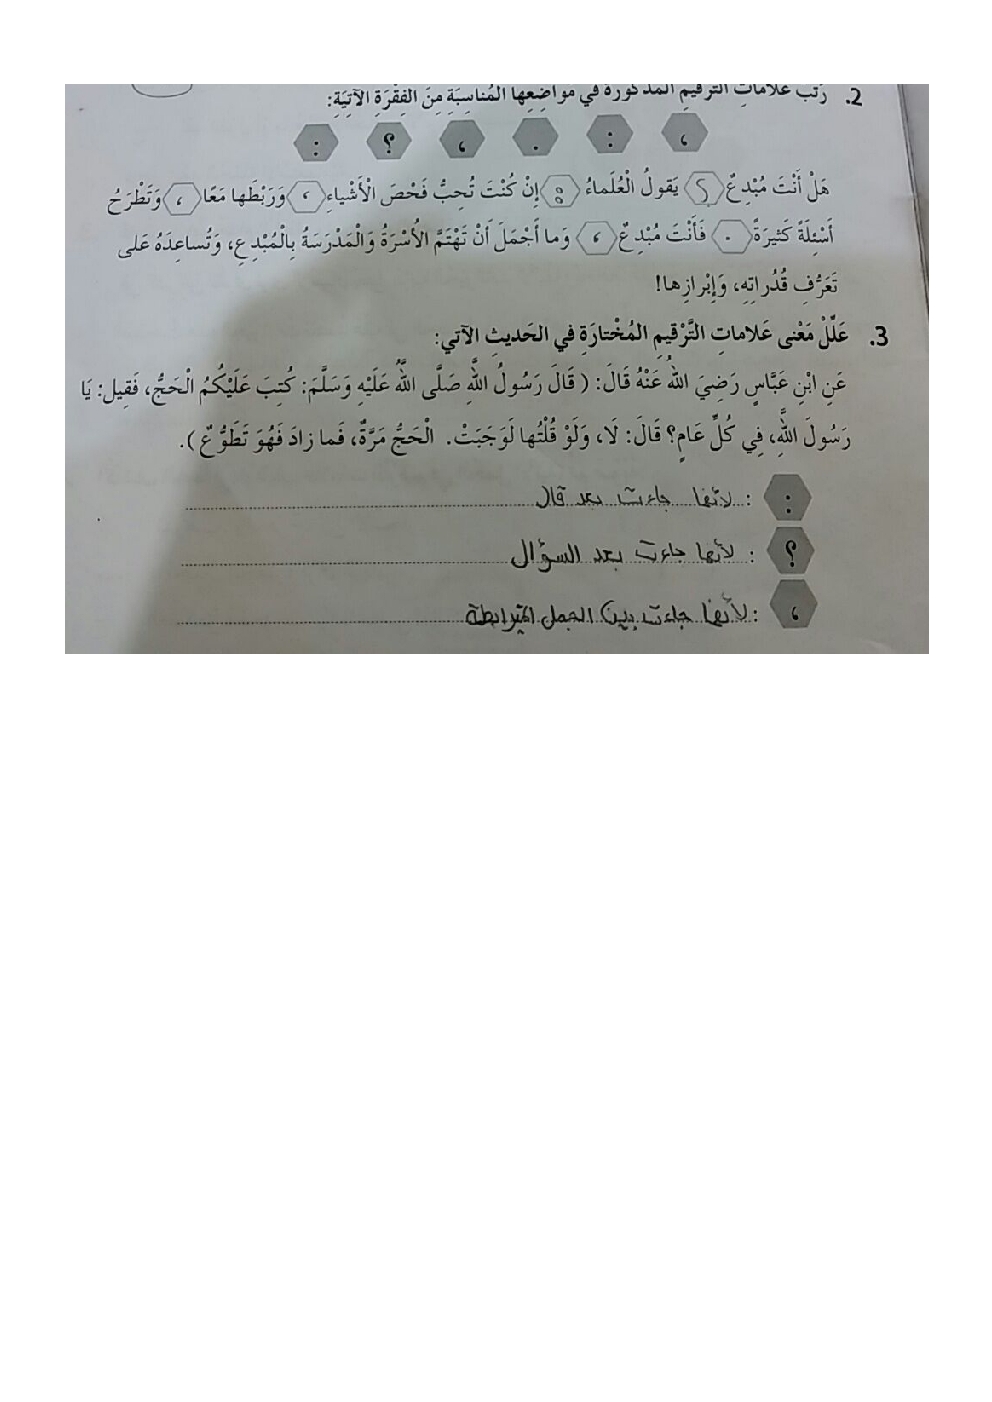 2. رَتِّب عَلاماتِ التَّرْقيمِ المَذْكورَةَ في مَواضِعِها المُناسِبَةِ مِنَ الفِقْرَةِ الآتِيَةِ:
، : . ، ؟ :
هَلْ أَنْتَ مُبْدِعٌ ؟ يَقولُ الْعُلَماءُ : إِنْ كُنْتَ تُحِبُّ فَحْصَ الْأَشْياءِ ، وَرَبْطَها مَعًا ، وَتَطْرَحُ
أَسْئِلَةً كَثيرَةً . فَأَنْتَ مُبْدِعٌ ، وَما أَجْمَلَ أَنْ تَهْتَمَّ الأُسْرَةُ وَالْمَدْرَسَةُ بِالْمُبْدِعِ، وَتُساعِدَهُ عَلى
تَعَرُّفِ قُدُراتِهِ، وَإِبْرازِها!
3. عَلِّلْ مَعْنى عَلاماتِ التَّرْقيمِ المُخْتارَةِ في الحَديثِ الآتي:
عَنِ ابْنِ عَبَّاسٍ رَضِيَ اللهُ عَنْهُ قَالَ: ( قَالَ رَسُولُ اللَّهِ صَلَّى اللهُ عَلَيْهِ وَسَلَّمَ: كُتِبَ عَلَيْكُمُ الْحَجُّ، فَقِيل: يَا
رَسُولَ اللَّهِ، فِي كُلِّ عَامٍ؟ قَالَ: لَا، وَلَوْ قُلْتُها لَوَجَبَتْ. الْحَجُّ مَرَّةٌ، فَما زادَ فَهُوَ تَطَوُّعٌ ).
: : لأنها جاءت بعد قال
؟ : لأنها جاءت بعد السؤال
، : لأنها جاءت بين الجمل المترابطة